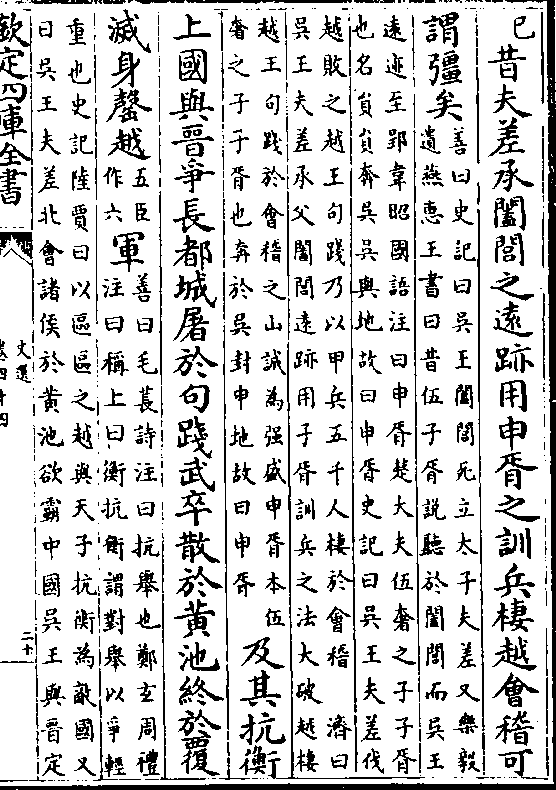 已昔夫差承闔閭之遠跡用申胥之訓兵棲越會稽可
謂彊矣
善曰史記曰吳王闔閭死立太子夫差又樂毅
遺燕惠王書曰昔伍子胥說聽於闔閭而吳王
遠迹至郢韋昭國語注曰申胥楚大夫伍奢之子子胥
也名員員奔吳吳與地故曰申胥史記曰吳王夫差伐
越敗之越王句踐乃以甲兵五千人棲於會稽 濟曰
吳王夫差承父闔閭遠跡用子胥訓兵之法大破越棲
越王句踐於會稽之山誠為强盛申胥本伍
奢之子子胥也奔於吳封申地故曰申胥
及其抗衡
上國與晉爭長都城屠於句踐武卒散於黃池終於覆
滅身罄越
五臣
作六
軍
善曰毛萇詩注曰抗舉也鄭玄周禮
注曰稱上曰衡抗衡謂對舉以爭輕
重也史記陸賈曰以區區之越與天子抗衡為敵國又
曰吳王夫差北會諸侯於黃池欲霸中國吳王與晉定
欽定四庫全書
文選
卷四十四
二十